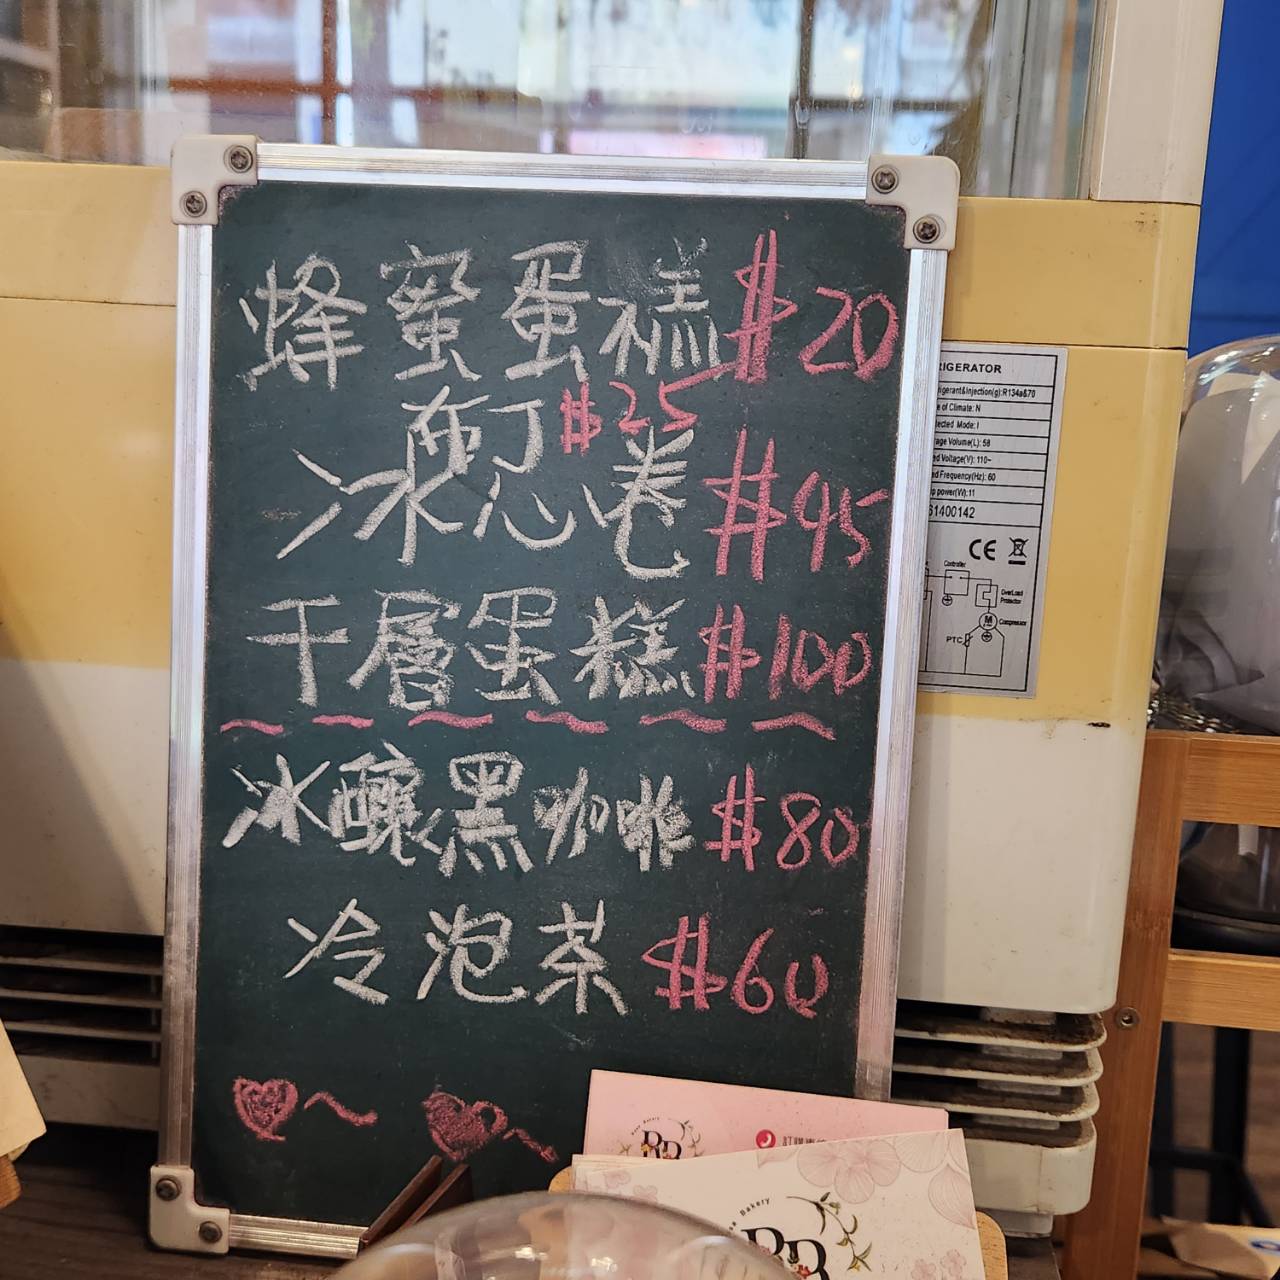 蜂蜜蛋糕 $20
布丁 $25
冰心卷 $95
千層蛋糕 $100
冰釀黑咖啡 $80
冷泡茶 $60
RIGERATOR
rigerant&Injection(g):R134a&70
e of Climate: N
tected Mode: I
rage Volume(L): 58
ed Voltage(V): 110~
ed Frequency(Hz): 60
p power(W): 11
S1400142
CE
Controller
OverLoad Protector
M
Compressor
PTC
Rose Bakery
RB
訂購專
se Bakery
RB